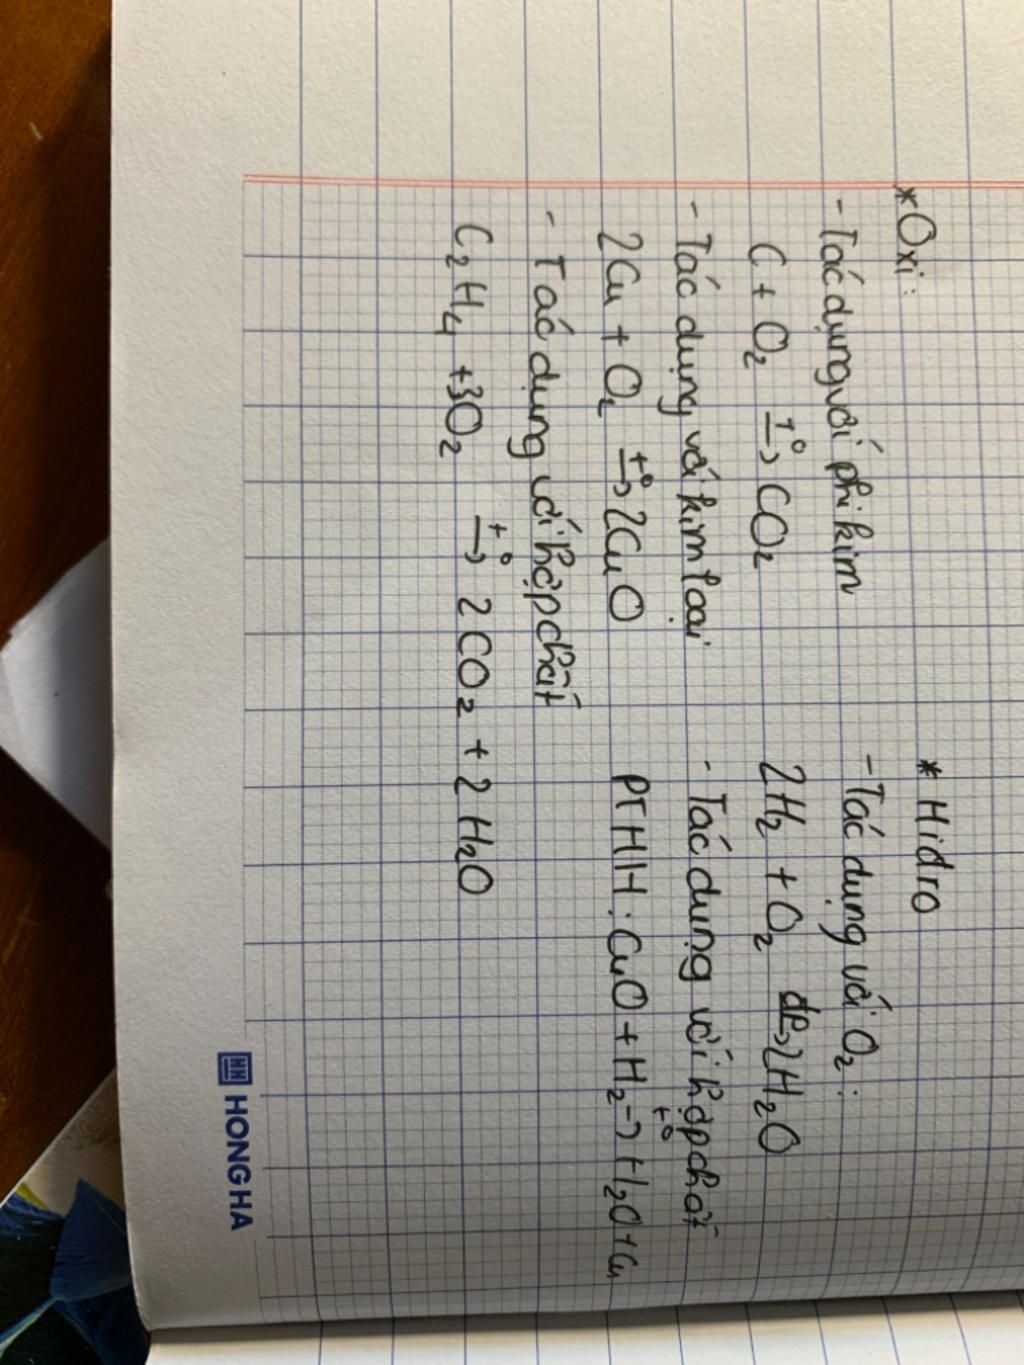 *Oxi:
- Tác dụng với phi kim
C + O₂ →(t°) CO₂
- Tác dụng với kim loại
2Cu + O₂ →(t°) 2CuO
- Tác dụng với hợp chất
C₂H₄ +3O₂ →(t°) 2CO₂ + 2H₂O
* Hiđro
- Tác dụng với O₂:
2H₂ + O₂ → 2H₂O
- Tác dụng với hợp chất
PTHH: CuO + H₂ →(t°) H₂O + Cu
HH HONG HA